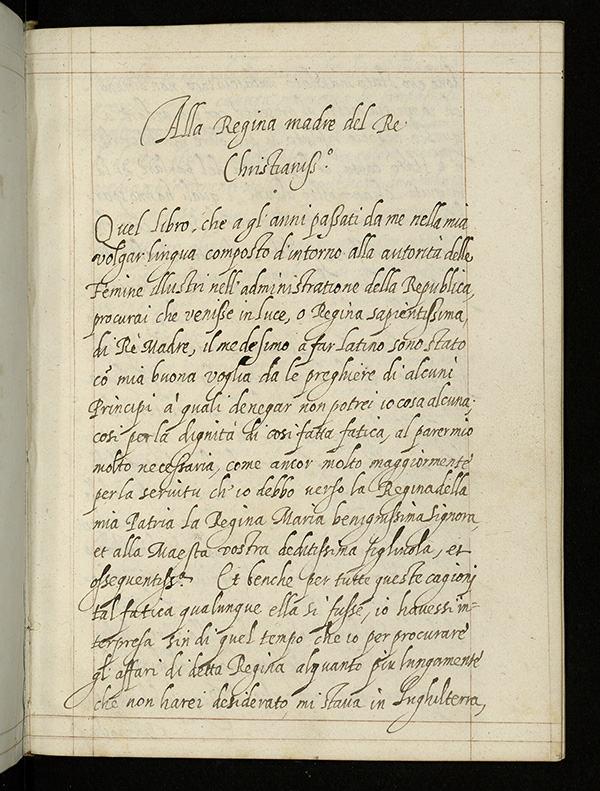 Alla Regina madre del Re
Christianiss.º
Quel libro, che a gl'anni passati da me nella mia
volgar lingua composto d'intorno alla autorità delle
Femine illustri nell'administratione della Republica,
procurai che venisse in luce, o Regina sapientissima,
di Rè Madre, il medesimo a far latino sono stato
cō mia buona voglia da le preghiere di alcuni
Principi à quali denegar non potrei io cosa alcuna;
cosi per la dignità di cosi fatta fatica, al parer mio
molto necessaria, come ancor molto maggiormente
per la servitu ch'io debbo verso la Regina della
mia Patria la Regina Maria benignissima signora,
et alla Maesta vostra deditissima figliuola, et
ossequentiss.ª Et benche per tutte queste cagioni
tal fatica qualunque ella si fusse, io havessi in-
terpresa sin di quel tempo che io per procurare
gl'affari di detta Regina alquanto più lungamente
che non harei desiderato, mi stava in Inghilterra,